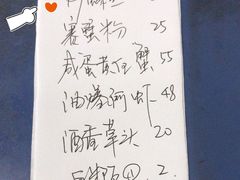 赛蟹粉 25
咸蛋黄焗蟹 55
油爆河虾 48
酒香草头 20
2.